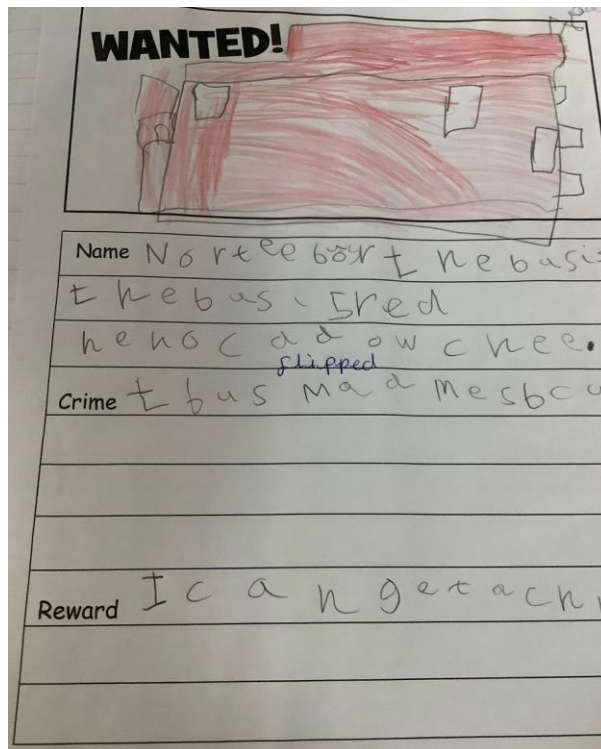 WANTED!
Name Nortee boyr t he basis
t he bus isred
he hoc dd ow chee.
flipped
Crime t bus mad mesbcu
Reward I can get a ch